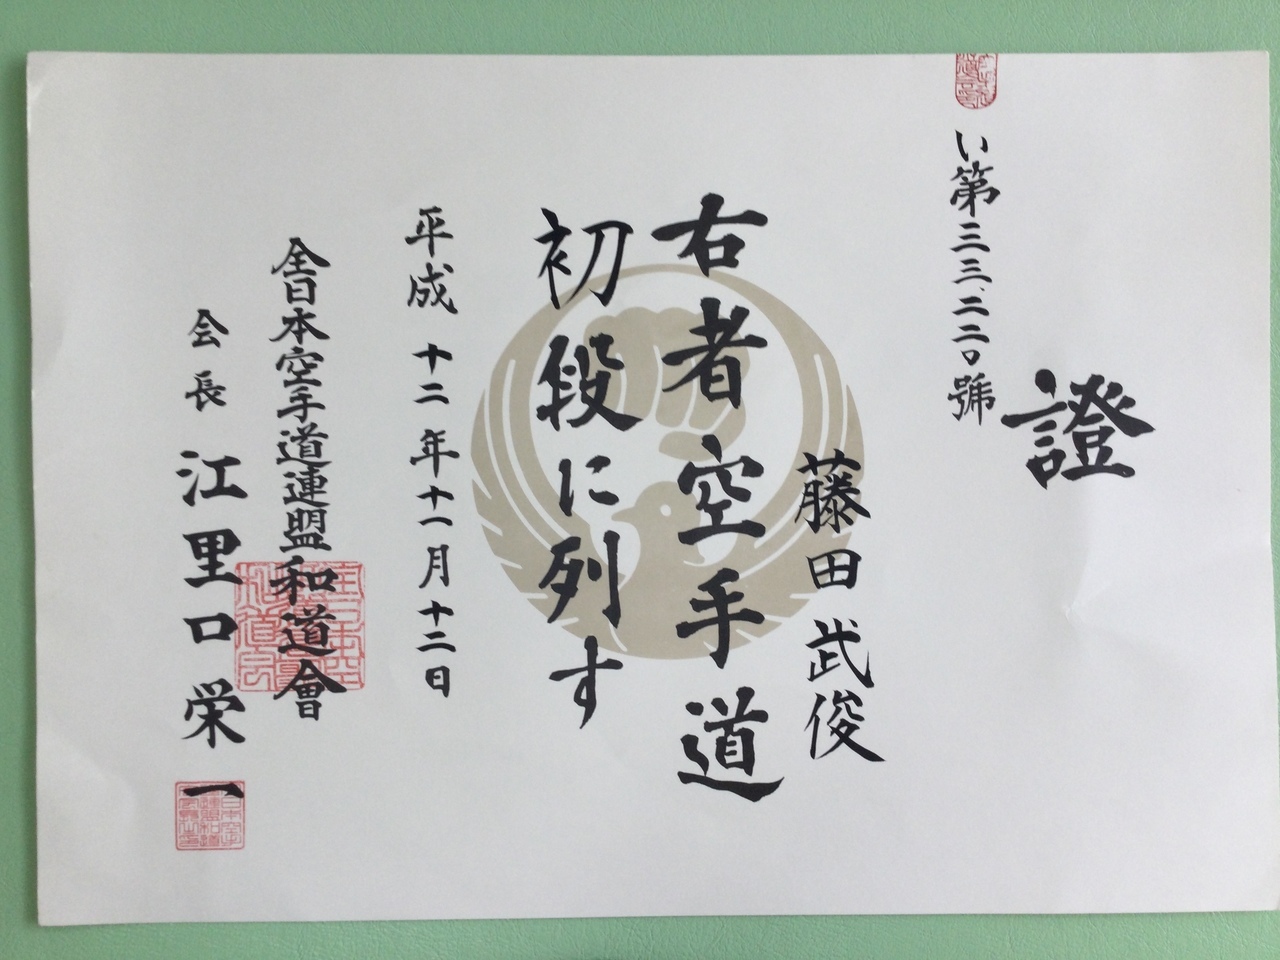 證
い第三三、二二〇號
藤田武俊
右者空手道
初段に列す
平成十二年十一月十二日
全日本空手道連盟和道會
会長 江里口栄一